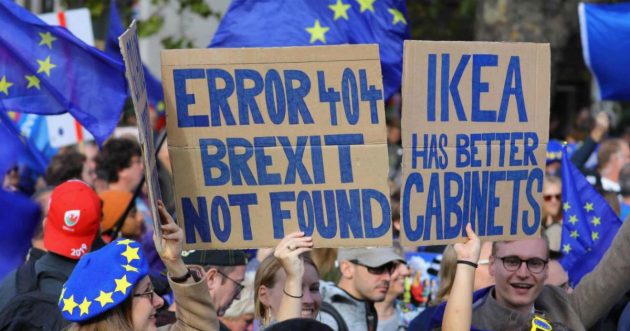 ERROR 404
BREXIT
NOT FOUND
IKEA
HAS BETTER
CABINETS